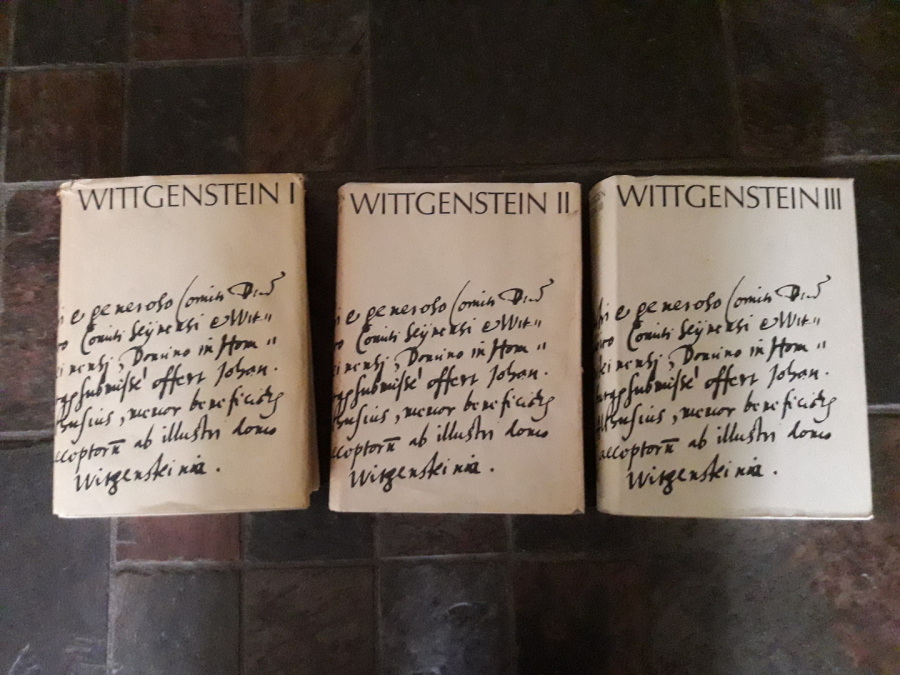 WITTGENSTEIN I
e generoso Comiti
Comiti Seynensi & Wit-
nensi, Domino in Hom-
submisse offert Johan.
usius, memor beneficiorū
acceptorū ab illustri domo
Witgensteinia.
WITTGENSTEIN II
e generoso Comiti
Comiti Seynensi & Wit-
nensi, Domino in Hom-
submisse offert Johan.
usius, memor beneficiorū
acceptorū ab illustri domo
Witgensteinia.
WITTGENSTEIN III
e generoso Comiti
Comiti Seynensi & Wit-
nensi, Domino in Hom-
submisse offert Johan.
usius, memor beneficiorū
acceptorū ab illustri domo
Witgensteinia.